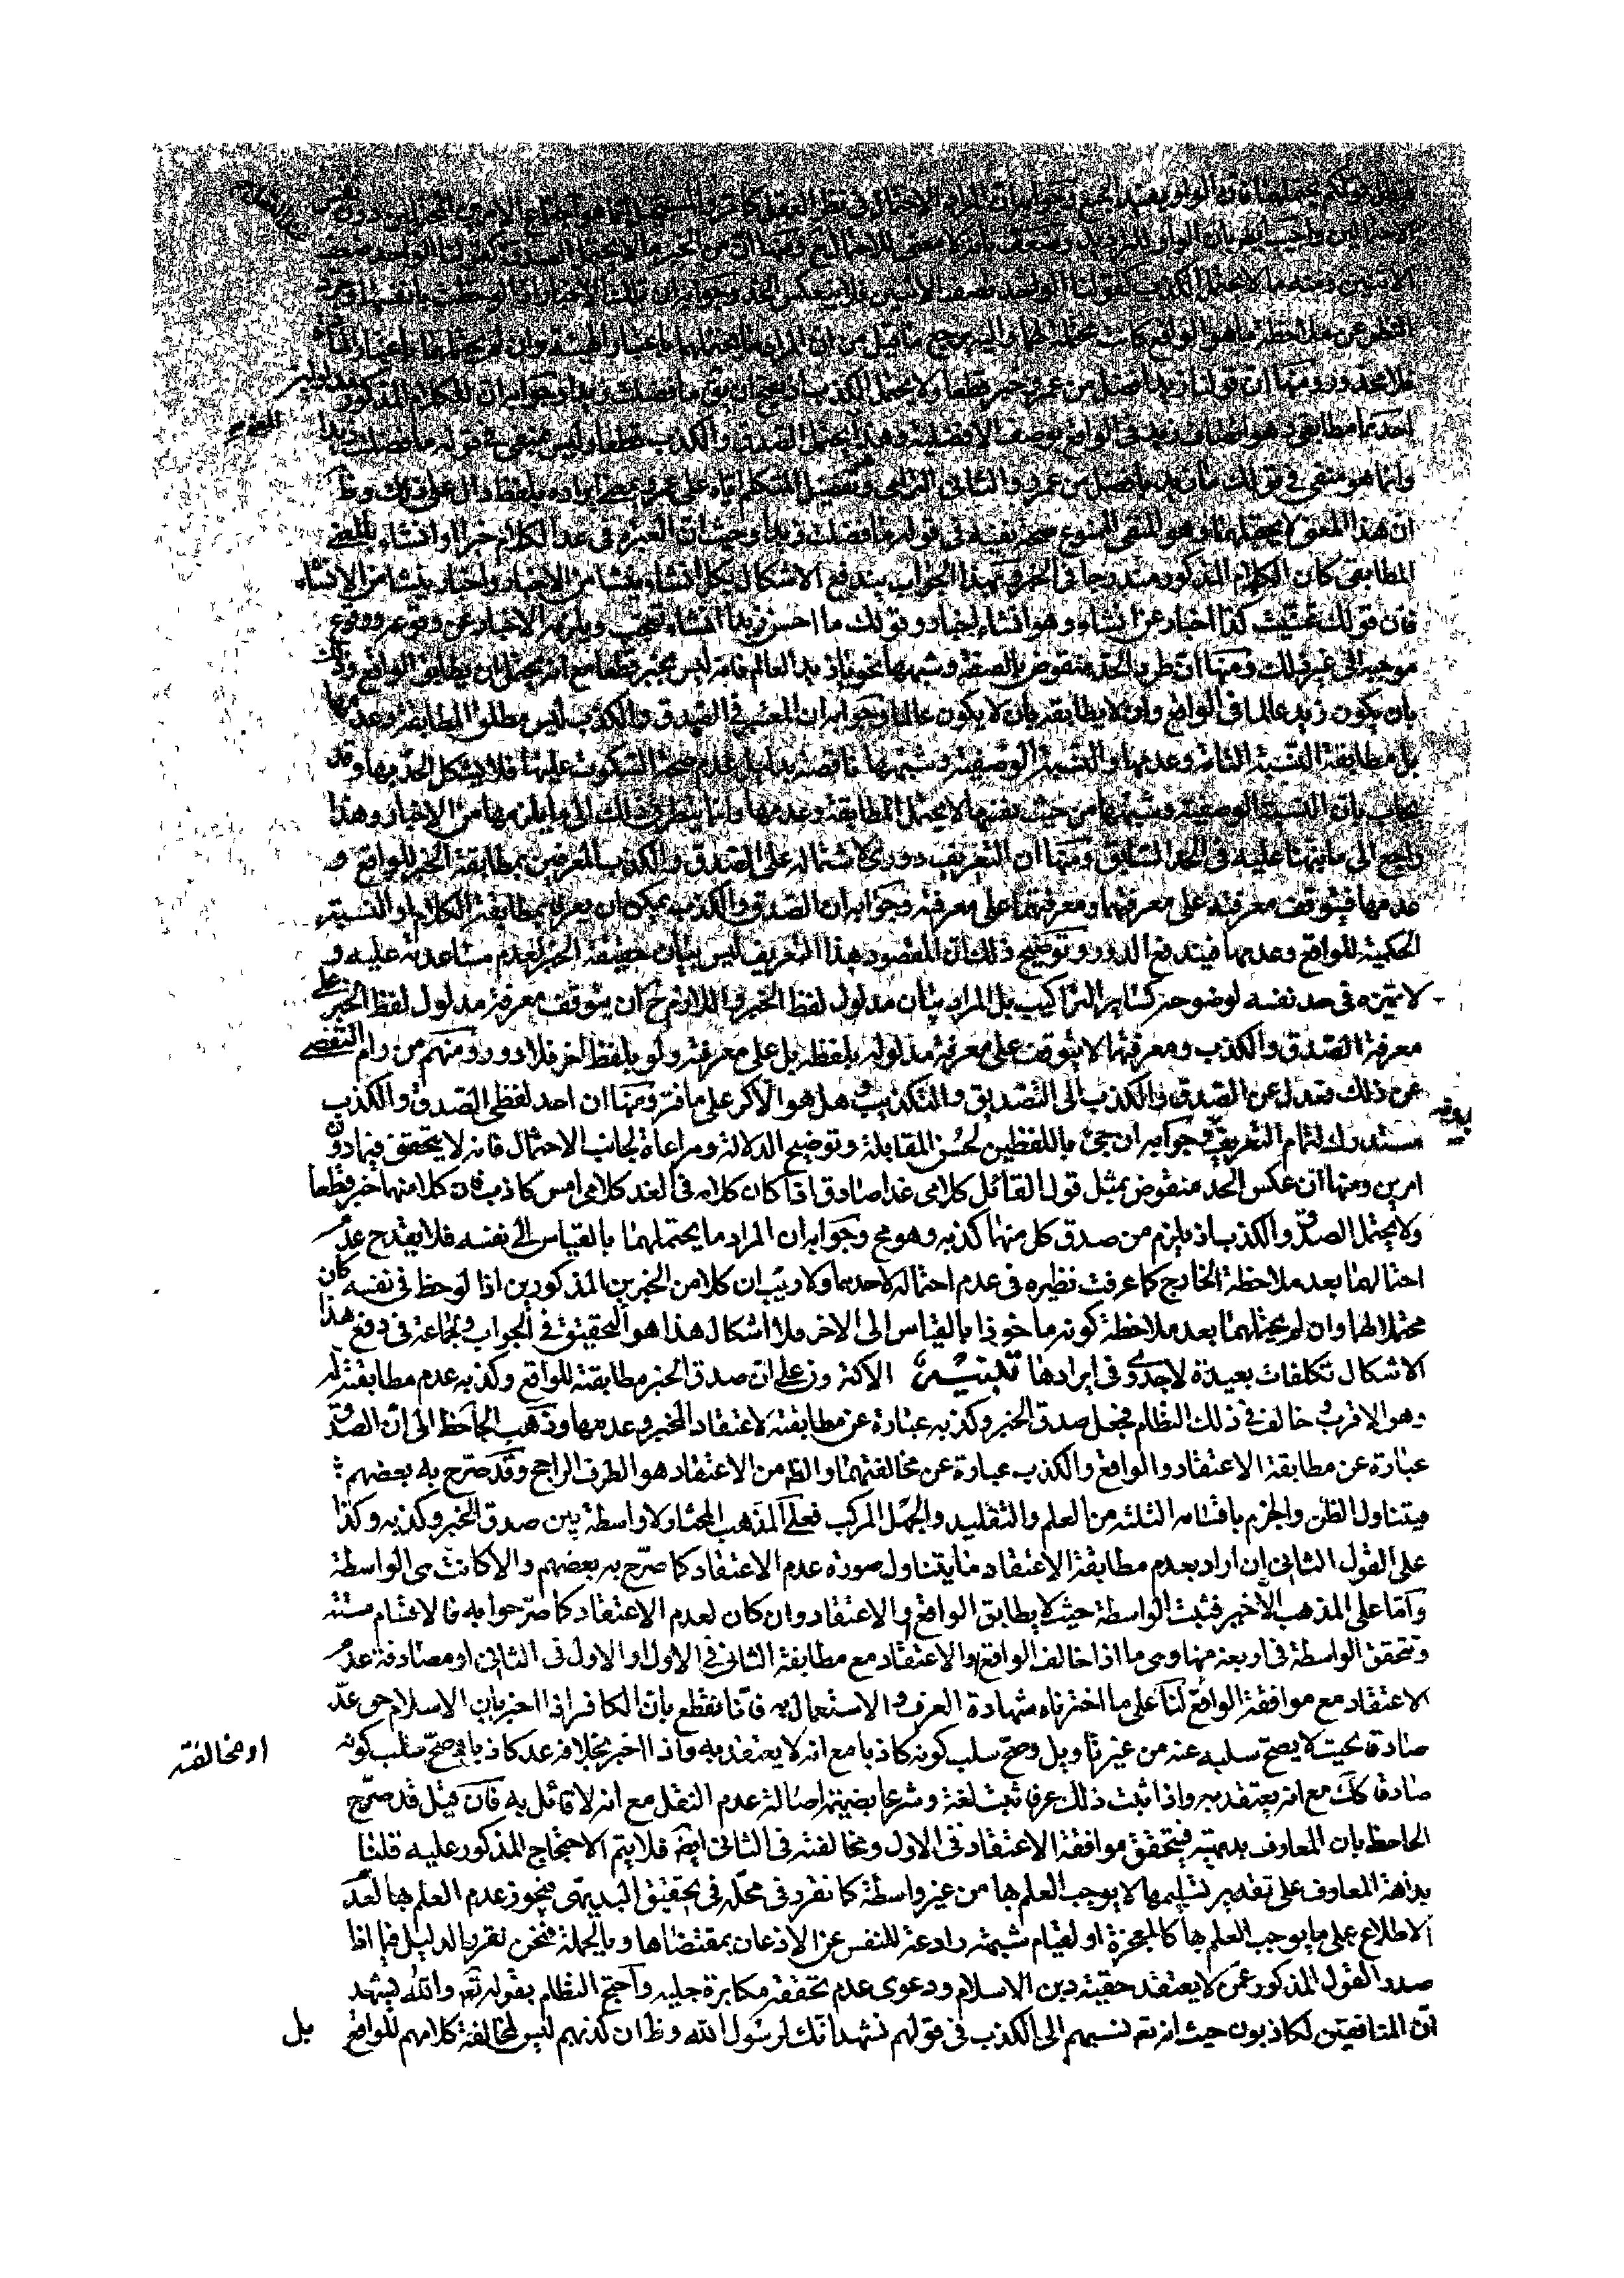 الاثنين ومنه ما لا يحتمل الكذب كقولنا الواحد نصف الاثنين فلا ينعكس الحد وجوابه ان تلك الاخبار اذا لوحظت بانفسها وجرد
النظر عن ملاحظة ما هو الواقع كانت محتملة لهما واليه يرجع ما قيل من ان المراد ما يحتملهما باعتبار الهيئة وان لم يحتملهما باعتبار المادة
فلا محذور ومنها ان قولنا زيد افضل من عمرو خبر قطعا ولا يحتمل الكذب اذ يصح ان يق ما فضلت زيدا وجوابه ان للكلام المذكور مدلولين
احدهما مطابقي وهو اتصاف زيد في الواقع بوصف الافضلية وهذا يحتمل الصدق والكذب قطعا وليس بمنفي في قوله ما فضلت زيدا
وانما هو منفي في قولك ما زيد بافضل من عمرو والثاني التزامي وهو تفضيل المتكلم اياه على عمرو بمعنى ايراده بلفظ دال على ذلك وظ
ان هذا المعنى لا يحتملهما وهو المنفي الممنوع صحة نفيه في قوله ما فضلت زيدا وحيث ان العبرة في عد الكلام خبرا او انشاء بالمعنى
المطابقي كان الكلام المذكور مندرجا في الخبر وبهذا الجواب يندفع الاشكال بكل انشاء ينشا من الاخبار واخبار ينشا من الانشاء
فان قولك تمنيت كذا اخبار عن انشاء وهو انشاء لاخبار وقولك ما احسن زيدا انشاء تعجب ويلزمه الاخبار عن وقوعه ووقوع
موجبه الى غير ذلك ومنها ان طرد الحد منقوض بالصفة وشبهها نحو يا زيد العالم فانه ليس بخبر قطعا مع انه يحتمل ان يطابق الواقع وذلك
بان يكون زيد عالما في الواقع وان لا يطابقه بان لا يكون عالما وجوابه ان المعتبر في الصدق والكذب ليس مطلق المطابقة وعدمها
بل مطابقة النسبة التامة وعدمها والنسبة الوصفية وشبهها ناقصة بدليل عدم صحة السكوت عليها فلا يشكل الحد بها وقد
يجاب بان النسبة الوصفية وشبهها من حيث نفسها لا يحتمل المطابقة وعدمها وانما ينظر في ذلك الى ما يلزمها من الاخبار وهذا
راجع الى ما نبهنا عليه في الحد السابق ومنها ان التعريف دوري لاشتماله على الصدق والكذب المعرفين بمطابقة الخبر للواقع و
عدمها فيتوقف معرفته على معرفتهما ومعرفتهما على معرفته وجوابه ان الصدق والكذب يمكن ان يعرفا بمطابقة الكلام او النسبة
الحكمية للواقع وعدمها فيندفع الدور وتوضيح ذلك ان المقصود بهذا التعريف ليس بيان حقيقة الخبر لعدم مساعدته عليه و
لا تميزه في حد نفسه لوضوحه كساير التراكيب بل المراد بيان مدلول لفظ الخبر واللازم ح ان يتوقف معرفة مدلول لفظ الخبر على
معرفة الصدق والكذب ومعرفتهما لا يتوقف على معرفة مدلوله بلفظه بل على معرفته ولو بلفظ اخر فلا دور ومنهم من رام التفصي
عن ذلك فعدل عن الصدق والكذب الى التصديق والتكذيب وهل هو الا كر على ما فر ومنها ان احد لفظي الصدق والكذب
مستدرك لتمام التعريف بدونه وجوابه ان جئ باللفظين لحسن المقابلة وتوضيح الدلالة ومراعاة لجانب الاحتمال فانه لا يتحقق فيما دون
امرين ومنها ان عكس الحد منقوض بمثل قول القائل كلامي غدا صادق اذا كان كلامه في الغد كلامي امس كاذب فان كلا منهما خبر قطعا
ولا يحتمل الصدق والكذب اذ يلزم من صدق كل منهما كذبه وهو مح وجوابه ان المراد ما يحتملهما بالقياس الى نفسه فلا يقدح عدم
احتمالهما بعد ملاحظة الخارج كما عرفت نظيره في عدم احتماله لاحدهما ولا ريب ان كلا من الخبرين المذكورين اذا لوحظ في نفسه كان
محتملا لهما وان لم يحتملهما بعد ملاحظة كونه ماخوذا بالقياس الى الاخر فلا اشكال هذا هو التحقيق في الجواب ولجماعة في دفع هذا
الاشكال تكلفات بعيدة لا جدوى في ايرادها تنبيه الاكثرون على ان صدق الخبر مطابقته للواقع وكذبه عدم مطابقته له
وهو الاقرب وخالف في ذلك النظام فجعل صدق الخبر وكذبه عبارة عن مطابقته لاعتقاد المخبر وعدمها وذهب الجاحظ الى ان الصدق
عبارة عن مطابقة الاعتقاد والواقع والكذب عبارة عن مخالفتهما والظ من الاعتقاد هو الطرف الراجح وقد صرح به بعضهم
فيتناول الظن والجزم باقسامه الثلثة من العلم والتقليد والجهل المركب فعلى المذهب المختار لا واسطة بين صدق الخبر وكذبه وكذا
على القول الثاني ان اراد بعدم مطابقة الاعتقاد ما يتناول صورة عدم الاعتقاد كما صرح به بعضهم والا كانت هي الواسطة
وآما على المذهب الاخير فثبت الواسطة حيث لا يطابق الواقع والاعتقاد وان كان لعدم الاعتقاد كما صرحوا به فالاقسام ستة
وتتحقق الواسطة في اربعة منها وهي ما اذا خالف الواقع والاعتقاد مع مطابقة الثاني في الاول والاول في الثاني او مصادفة عدم
الاعتقاد مع موافقة الواقع او مخالفته لنا على ما اخترناه شهادة العرف والاستعمال به فانا نقطع بان الكافر اذا اخبر بان الاسلام حق عد
صادقا بحيث لا يصح سلبه عنه من غير تاويل وصح سلب كونه كاذبا مع انه لا يعتقد به واذا اخبر بخلافه عد كاذبا وصح سلب كونه
صادقا كك مع انه يعتقد به واذا ثبت ذلك عرفا ثبت لغة وشرعا بضميمة اصالة عدم النقل مع انه لا قائل به فان قيل قد صرح
الجاحظ بان المعارف بديهية فيتحقق موافقة الاعتقاد في الاول ومخالفته في الثاني ايض فلا يتم الاحتجاج المذكور عليه قلنا
بداهة المعارف على تقدير تسليمها لا يوجب العلم بها من غير واسطة كما نقرر في محله في تحقيق البديهي فيجوز عدم العلم بها لعدم
الاطلاع على ما يوجب العلم بها كالمعجزة او لقيام شبهة رادعة للنفس عن الاذعان بمقتضاها وبالجملة فنحن نقرر الدليل فيما اذا
صدر القول المذكور عمن لا يعتقد حقية دين الاسلام ودعوى عدم تحققه مكابرة جليه وآحتج النظام بقوله تع والله يشهد
ان المنافقين لكاذبون حيث انه تع نسبهم الى الكذب في قولهم نشهد انك لرسول الله وظ ان كذبهم ليس لمخالفة كلامهم للواقع
بل